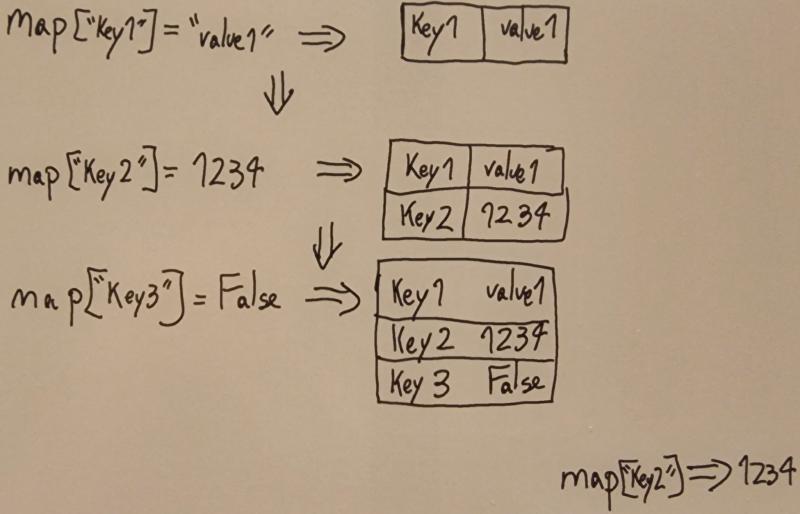 map["Key1"] = "value1" ⇒ Key1 value1
⇓
map["Key2"] = 1234 ⇒ Key1 value1
Key2 1234
⇓
map["Key3"] = False ⇒ Key1 value1
Key2 1234
Key3 False
map["Key2"] ⇒ 1234